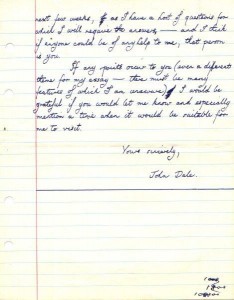 next few weeks, as I have a host of questions for
which I will require the answers — and I think
if anyone could be of any help to me, that person
is you.
If any points occur to you (even a different
theme for my essay — there must be many
features of which I am unaware), I would be
grateful if you would let me know and especially
mention a time when it would be suitable for
me to visit.
Yours sincerely,
John Dale.